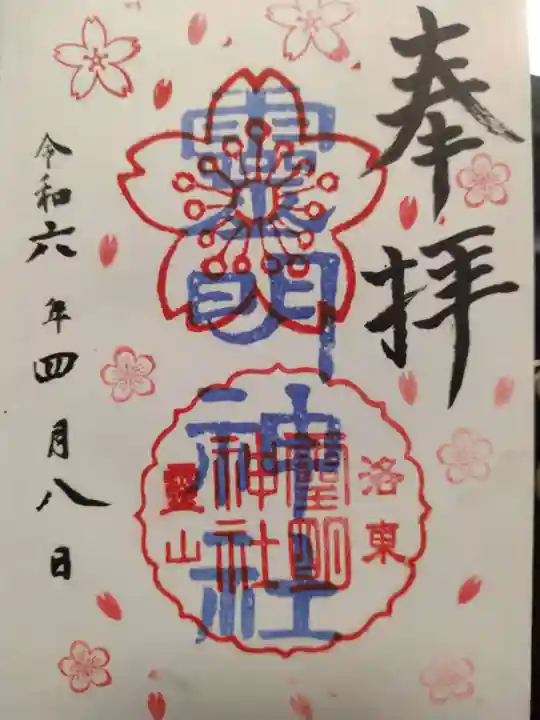 奉拝
霊明神社
洛東
霊明
神社
靈山
令和六年四月八日